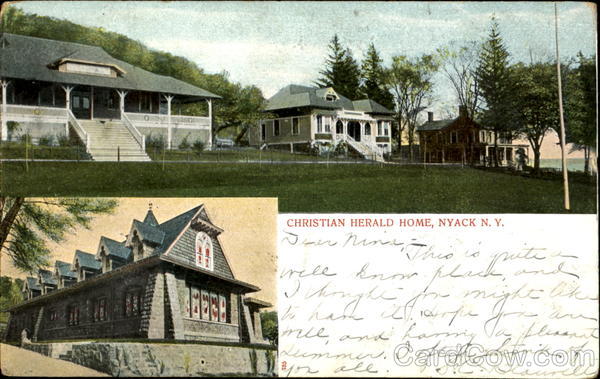 CHRISTIAN HERALD HOME, NYACK N. Y.
Dear Nina,
This is quite a
well know place and
I thought you might like
to have it. Hope you are
well, and having a pleasant
summer.
for all.
CardCow.com